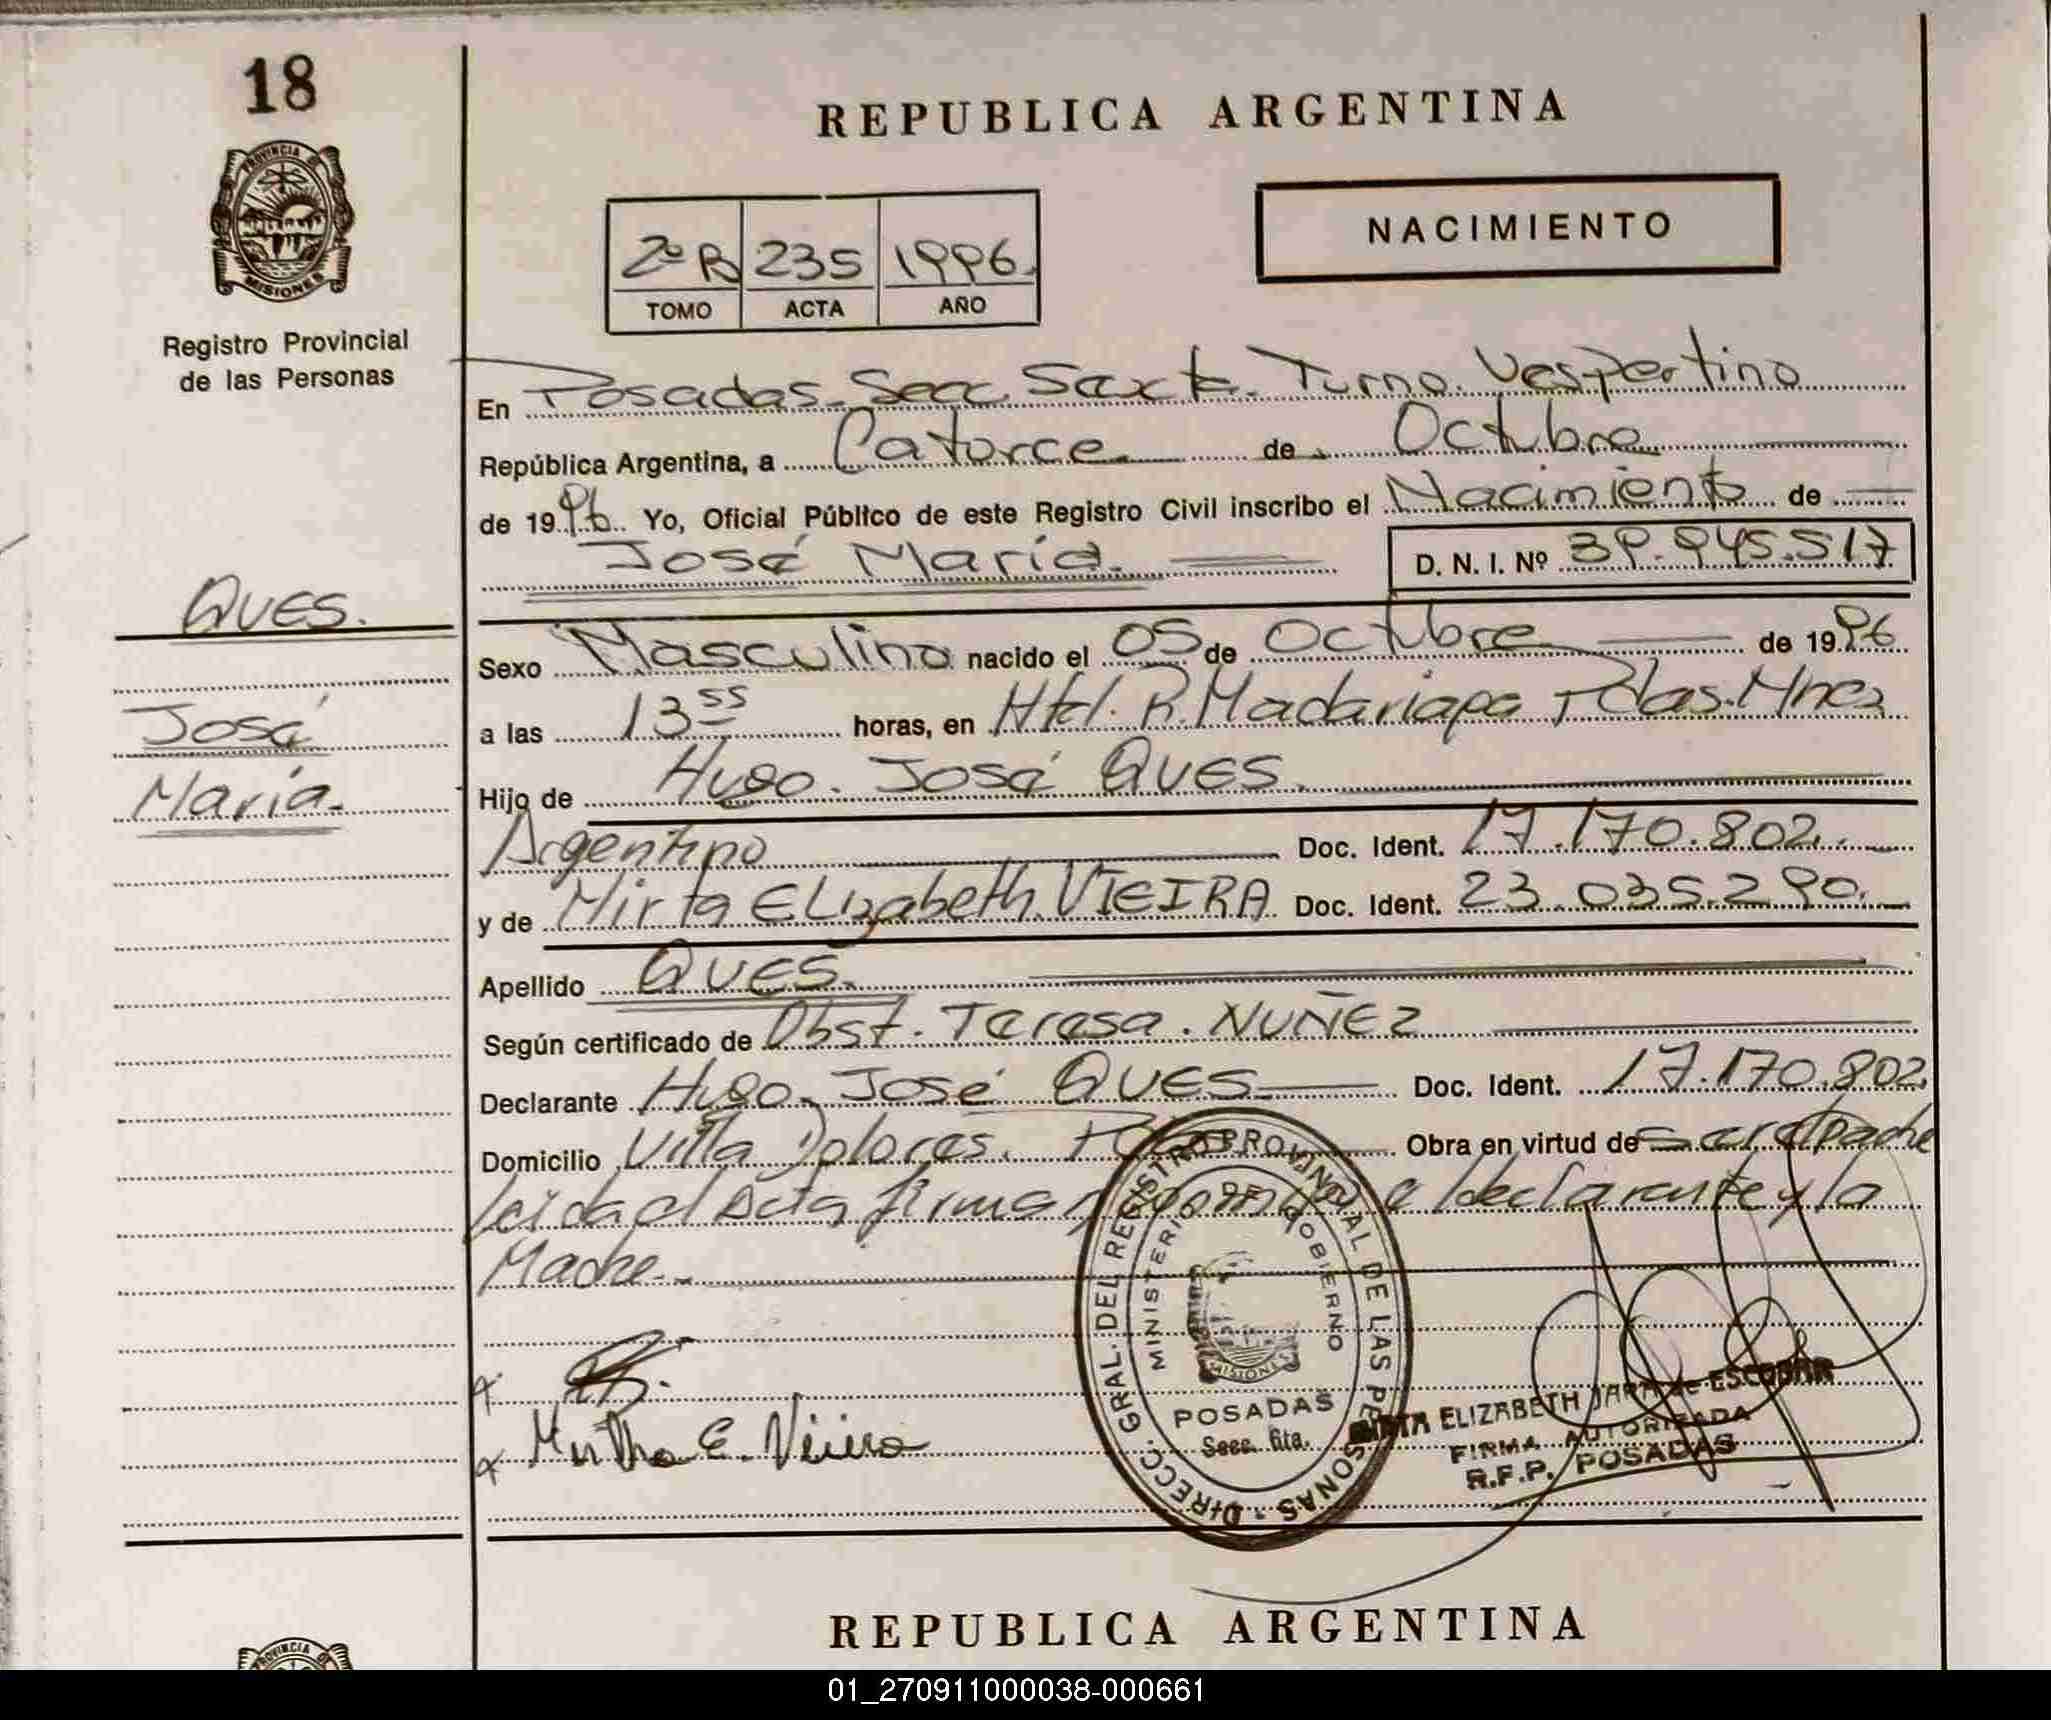 18
PROVINCIA DE
MISIONES
Registro Provincial
de las Personas
REPUBLICA ARGENTINA
NACIMIENTO
2º B 235 1996
TOMO ACTA AÑO
En Posadas. Secc. Sexta. Turno. Vespertino
República Argentina, a Catorce de Octubre
de 1996. Yo, Oficial Público de este Registro Civil inscribo el Nacimiento de
José María.
D. N. I. Nº 39.945.517
QUES.
José
María.
Sexo Masculino nacido el 05 de Octubre de 1996
a las 13 55 horas, en Htal. R. Madariaga Pdas. Mnes
Hijo de Hugo. José QUES.
Argentino Doc. Ident. 17.170.802.
y de Mirta ELizabeth VIEIRA Doc. Ident. 23.035.290.
Apellido QUES.
Según certificado de Obst. Teresa. NUÑEZ
Declarante Hugo. José QUES Doc. Ident. 17.170.802
Domicilio Villa Dolores. Obra en virtud de ser el padre
leida el Acta firma declarante y la
Madre.
Mirtha E. Vieira
DIRECC. GRAL. DEL REGISTRO PROVINCIAL DE LAS PERSONAS
MINISTERIO DE GOBIERNO
MISIONES
POSADAS
Secc. 6ta.
ELIZABETH JARA de ESCOBAR
FIRMA AUTORIZADA
R.F.P. POSADAS
REPUBLICA ARGENTINA
PROVINCIA DE
01_270911000038-000661